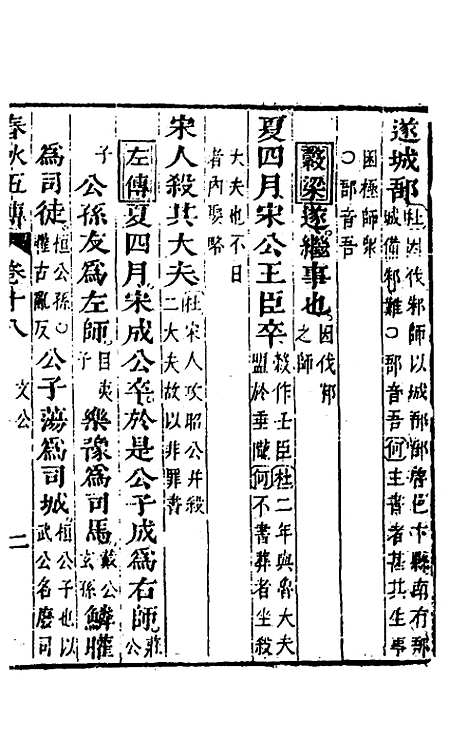 遂城郚杜因伐邾師以城郚郚魯邑卞縣南有郚
城備邾難○郚音吾何主書者甚其生事
困極師衆
○郚音吾
穀梁遂繼事也因伐邾
之師
夏四月宋公王臣卒穀作壬臣杜二年與魯大夫
盟於垂隴何不書葬者坐殺
大夫也不日
者內娶略
宋人殺其大夫杜宋人攻昭公并殺
二大夫故以非罪書
左傳夏四月宋成公卒於是公子成爲右師莊公
子公孫友爲左師目夷
子樂豫爲司馬戴公
玄孫鱗矔
爲司徒桓公孫○
矔古亂反公子蕩爲司城桓公子也以
武公名廢司
春秋五傳 卷十八 文公 二